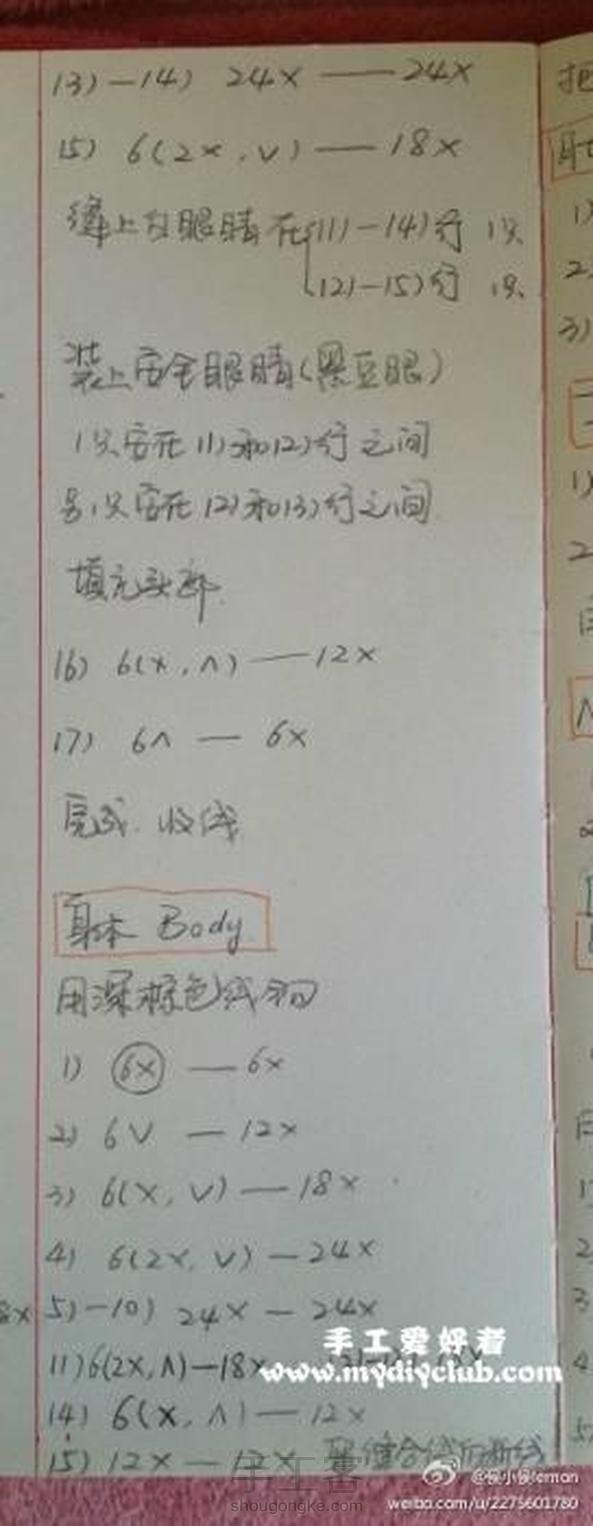 13)—14) 24X —— 24X
15) 6(2X,V) —— 18X
缝上白眼睛 在 11)—14)行 1只
12)—15)行 1只
装上安全眼睛(黑豆眼)
1只安在11)和12)行之间
另1只安在12)和13)行之间
填充头部
16) 6(X,Λ) —— 12X
17) 6Λ — 6X
完成.收线
身体 Body
用深棕色线钩
1) 6X — 6X
2) 6V — 12X
3) 6(X,V) — 18X
4) 6(2X,V) — 24X
5)—10) 24X — 24X
11) 6(2X,Λ)—18X
14) 6(X,Λ)— 12X
15) 12X — 12X 留缝合线后断线
手工爱好者
www.mydiyclub.com
手工客
shougongke.com
weibo.com/u/2275601780
把
1)
2)
3)
1)
2
1)
2
3
4
5)
8X